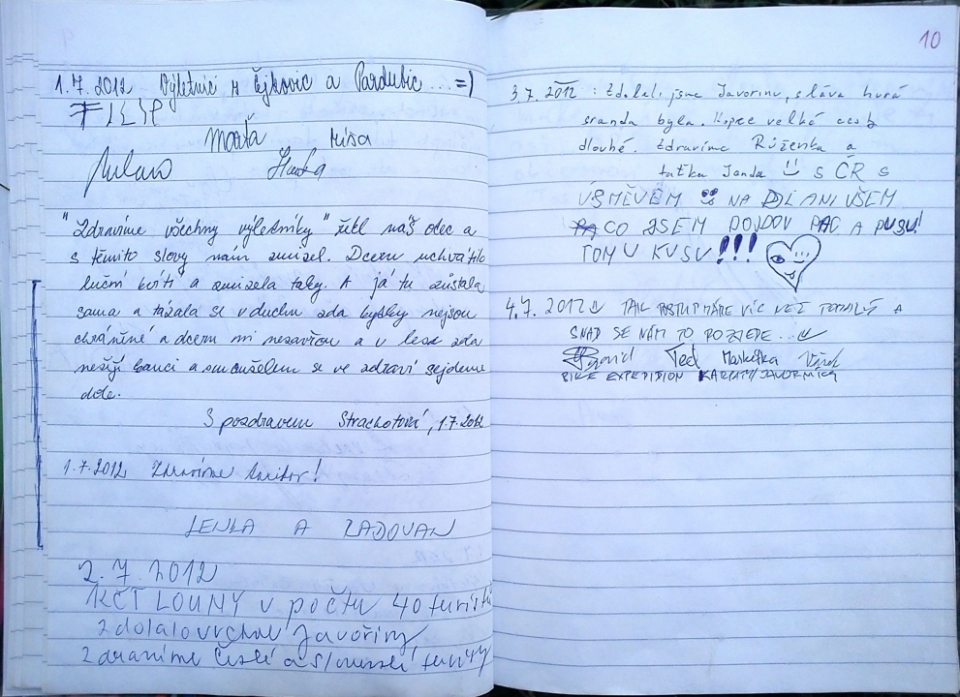 1.7.2012 Výletníci z Čejkovic a Pardubic ...=)
FILIP
Marťa Míša
Hanka
"Zdravíme všechny výletníky" řekl náš otec a
s těmito slovy nám zmizel. Dceru uchvátilo
luční kvítí a zmizela taky. A já tu zůstala
sama a tázala se v duchu zda kytky nejsou
chráněné a dceru mi nezavřou a v lese zda
nežijí kanci a smečušelem se ve zdraví sejdeme
dole.
S pozdravem Strachotová, 1.7.2012
1.7.2012 Zdravíme
LENKA A RADOVAN
2.7.2012
KČT LOUNY v počtu 40 turistů
zdolalo vrchol Javořiny,
zdravíme české a slovenské turisty
10
3.7.2012 : Zdolali jsme Javorinu, sláva hurá
sranda byla. Kopec velké cesty
dlouhé. Zdravíme Růženka a
taťka Janda S ČR S
ÚSMĚVEM NA DLANI VŠEM
CO JSEM DOJDOU PAC A PUSU!
TOMU KUSU!!!
4.7.2012 TAK POSTUPMÁME VÍC NEŽ POMALÝ A
SNAD SE NÁM TO POJEDE...
David Ted Markétka
BIKE EXPEDITION KARPATY/JAVORNÍKY